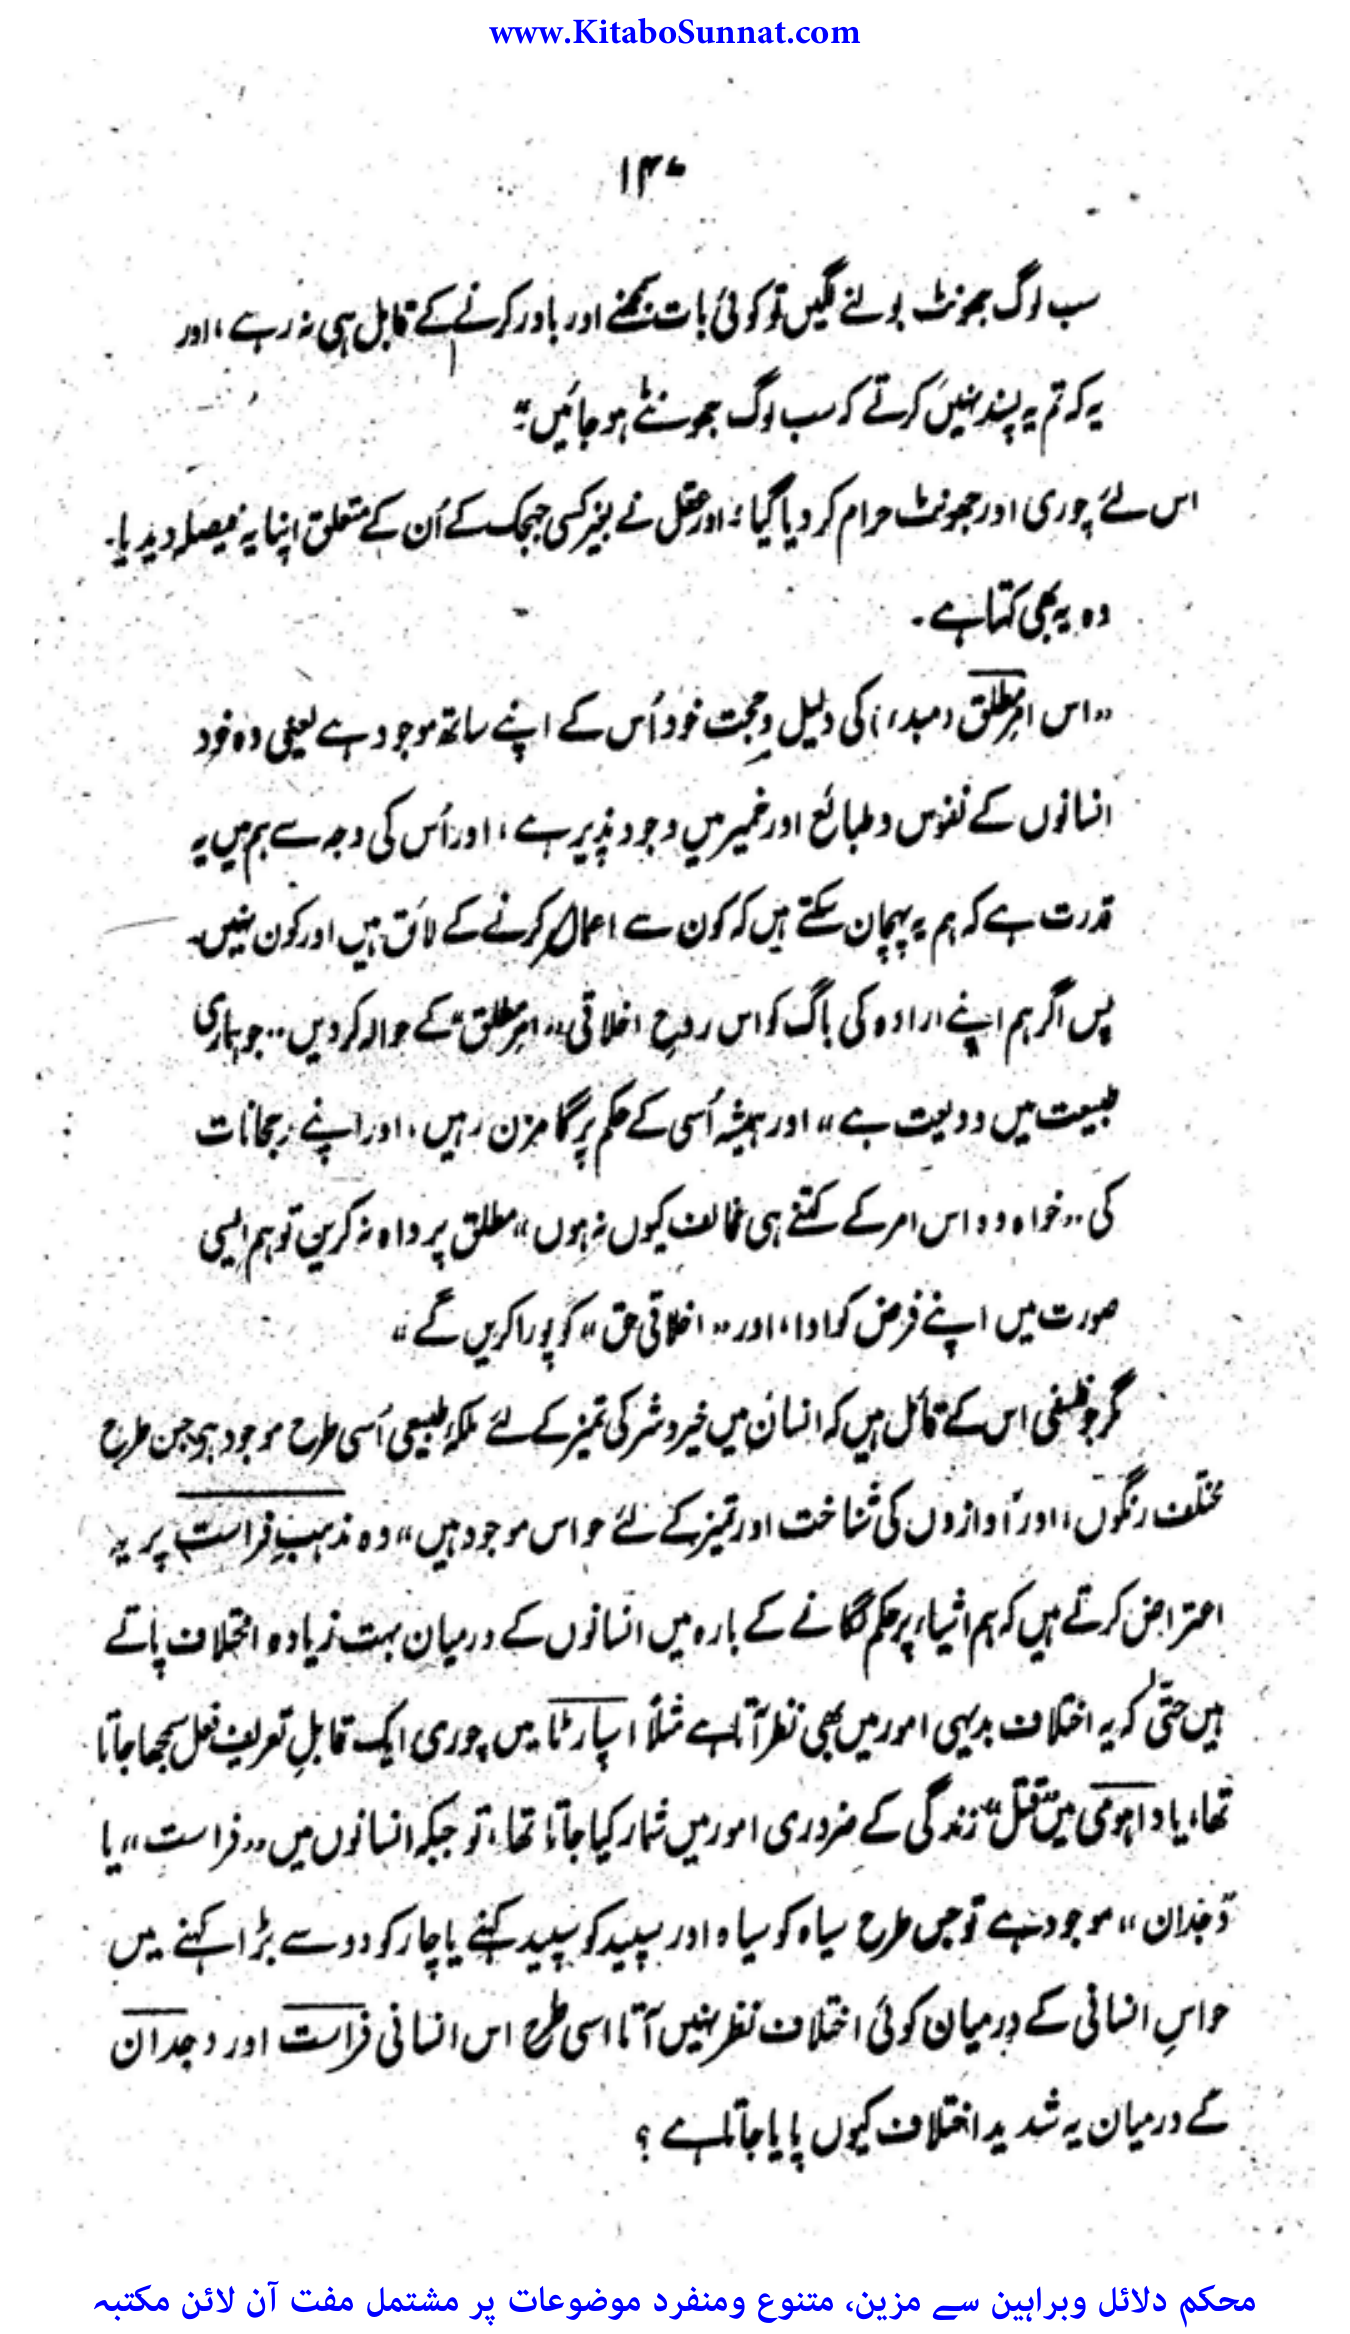 www.KitaboSunnat.com
۱۴۰
سب لوگ جھونٹ بولنے لگیں تو کوئی بات سمجھنے اور باور کرنے کے قابل ہی نہ رہے، اور
یہ کہ تم یہ پسند نہیں کرتے کہ سب لوگ جھونٹے ہو جائیں"
اس لئے چوری اور جھونٹ حرام کر دیا گیا، اور عقل نے بغیر کسی جھجک کے اُن کے متعلق اپنا یہ فیصلہ دیدیا۔
وہ یہ بھی کہتا ہے۔
"اس امرِ مطلق (مبداء) کی دلیل و حجت خود اُس کے اپنے ساتھ موجود ہے یعنی وہ خود
انسانوں کے نفوس و طبائع اور خمیر میں وجود پذیر ہے، اور اُس کی وجہ سے ہم میں یہ
قدرت ہے کہ ہم یہ پہچان سکتے ہیں کہ کون سے اعمال کرنے کے لائق ہیں اور کون نہیں۔
پس اگر ہم اپنے ارادہ کی باگ کو اس روحِ اخلاقی "امرِ مطلق" کے حوالہ کر دیں "جو ہماری
طبیعت میں ودیعت ہے" اور ہمیشہ اُسی کے حکم پر گامزن رہیں، اور اپنے رجحانات
کی "خواہ وہ اس امر کے کتنے ہی مخالف کیوں نہ ہوں" مطلق پرواہ نہ کریں تو ہم ایسی
صورت میں اپنے فرض کو ادا، اور "اخلاقی حق" کو پورا کریں گے"
مگر جو فلسفی اس کے قائل ہیں کہ انسان میں خیر و شر کی تمیز کے لئے ملکۂ طبیعی اُسی طرح موجود ہے جس طرح
مختلف رنگوں، اور آوازوں کی شناخت اور تمیز کے لئے حواس موجود ہیں" وہ مذہبِ فراست پر یہ
اعتراض کرتے ہیں کہ ہم اشیاء پر حکم لگانے کے بارہ میں انسانوں کے درمیان بہت زیادہ اختلاف پاتے
ہیں حتّٰی کہ یہ اختلاف بدیہی امور میں بھی نظر آتا ہے مثلاً اسپارٹا میں چوری ایک قابلِ تعریف فعل سمجھا جاتا
تھا، یا داہومی میں "قتل" زندگی کے ضروری امور میں شمار کیا جاتا تھا، تو جبکہ انسانوں میں "فراست" یا
"وجدان" موجود ہے تو جس طرح سیاہ کو سیاہ اور سپید کو سپید کہنے یا چار کو دو سے بڑا کہنے میں
حواسِ انسانی کے درمیان کوئی اختلاف نظر نہیں آتا اسی طرح اس انسانی فراست اور وجدان
کے درمیان یہ شدید اختلاف کیوں پایا جاتا ہے؟
محکم دلائل وبراہین سے مزین، متنوع ومنفرد موضوعات پر مشتمل مفت آن لائن مکتبہ